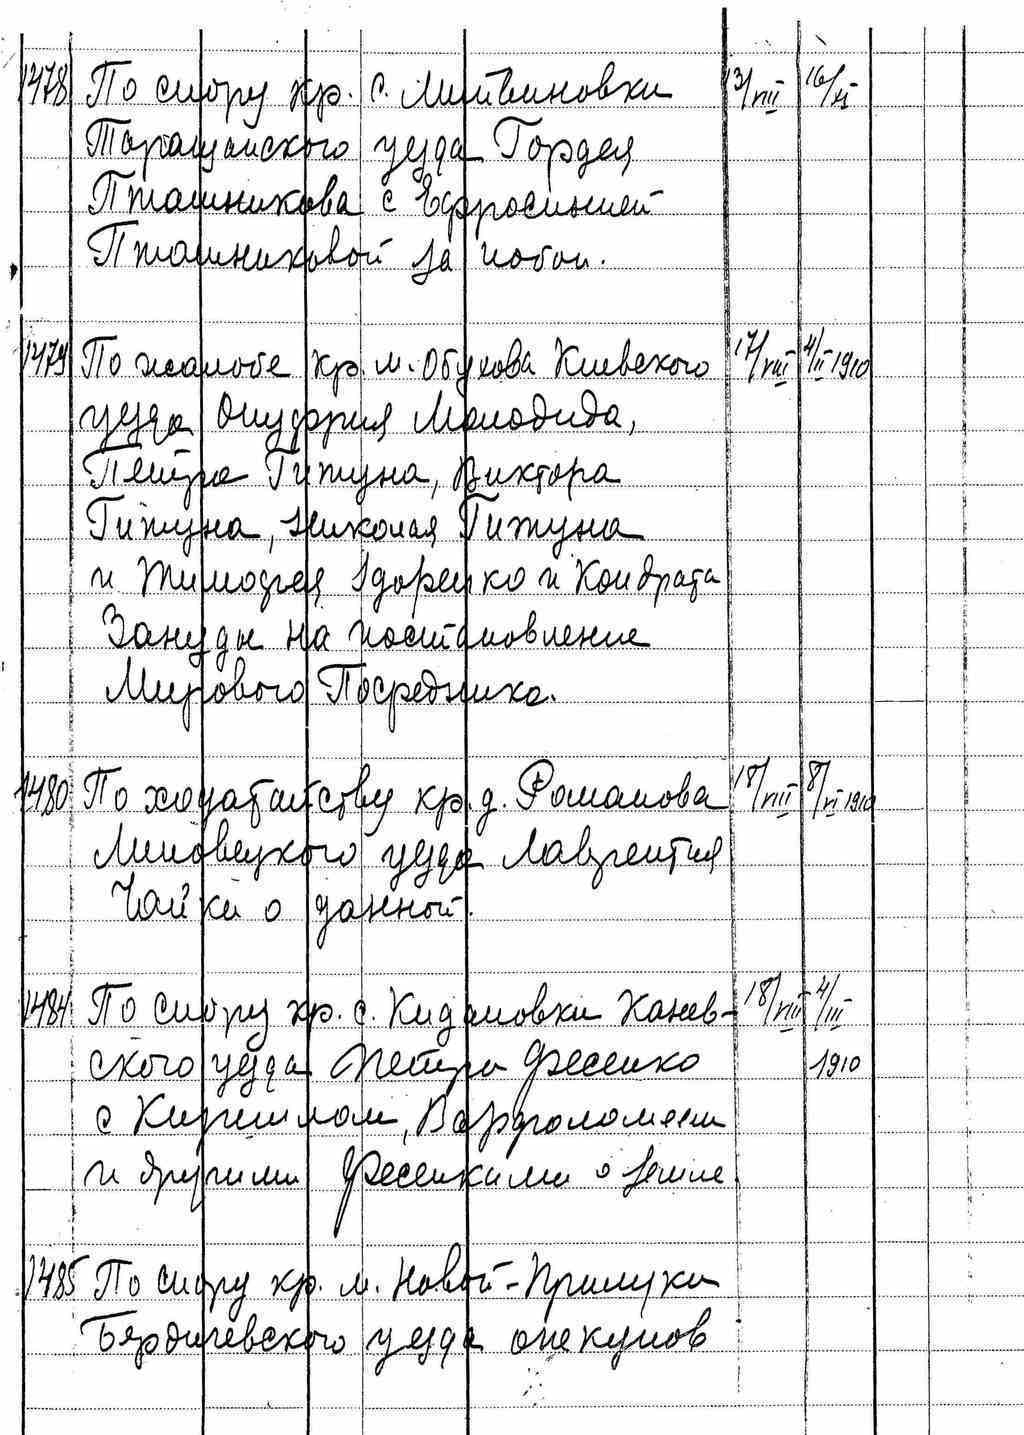 1478 По спору кр. с. Литвиновки 13/VIII 16/XI
Таращанского уезда Гордея
Пташникова с Ефросинией
Пташниковой за побои.
1479 По жалобе кр. м. Обухова Киевского 17/VIII 4/II 1910
уезда Онуфрия Молодида,
Петра Гижуна, Виктора
Гижуна, Николая Гижуна
и Тимофея Здоренко и Кондрата
Зануды на постановление
Мирового Посредника.
1480 По ходатайству кр. д. Романова 18/VIII 8/VI 1910
Липовецкого уезда Лаврентия
Чайки о данной.
1484 По спору кр. с. Кидановки Канев- 18/VIII 4/III
ского уезда Петра Фесенко 1910
с Кириллом, Варфоломеем
и другими Фесенками о земле
1485 По спору кр. м. Новой-Прилуки
Бердичевского уезда опекунов